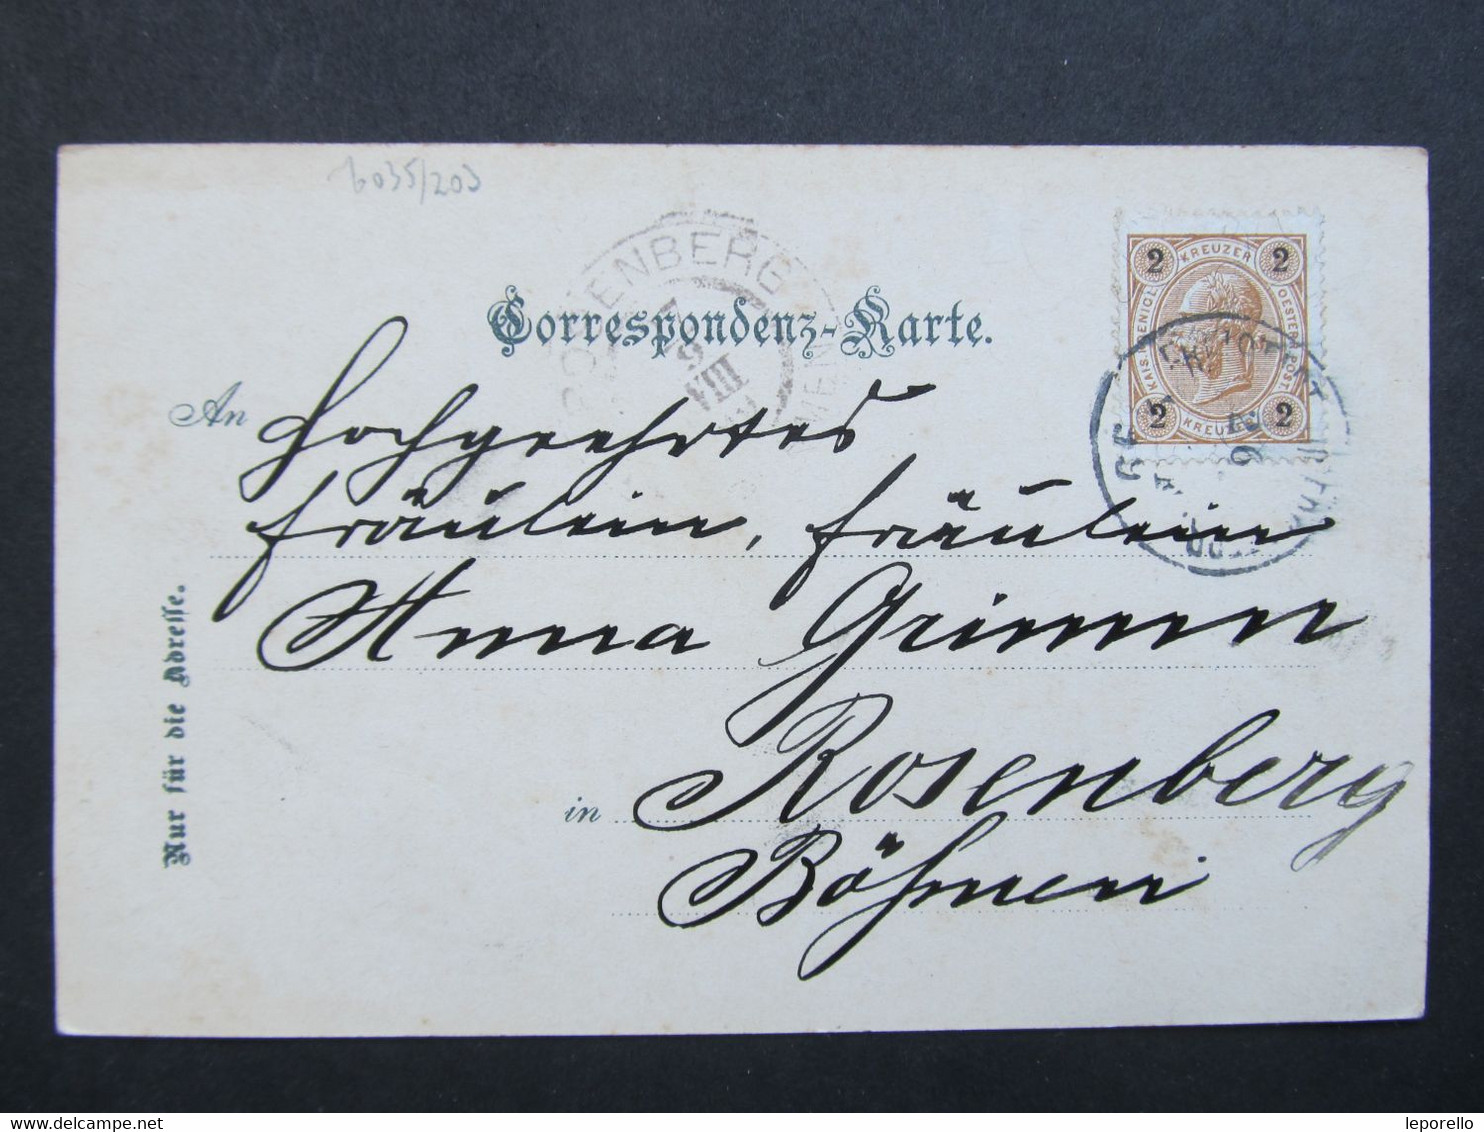 6035/203
ROSENBERG
Correspondenz-Karte.
2 KREUZER 2
KAIS. KOENIGL. OESTERR. POST
2 KREUZER 2
An Hochgeehrtes
Fräulein, Fräulein
Anna Grimm
in Rosenberg
Böhmen
Nur für die Adresse.
leporello